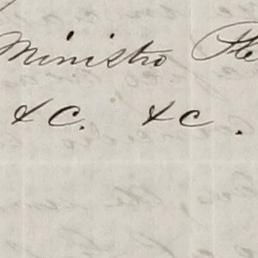 Ministro Ple
&C. &C.